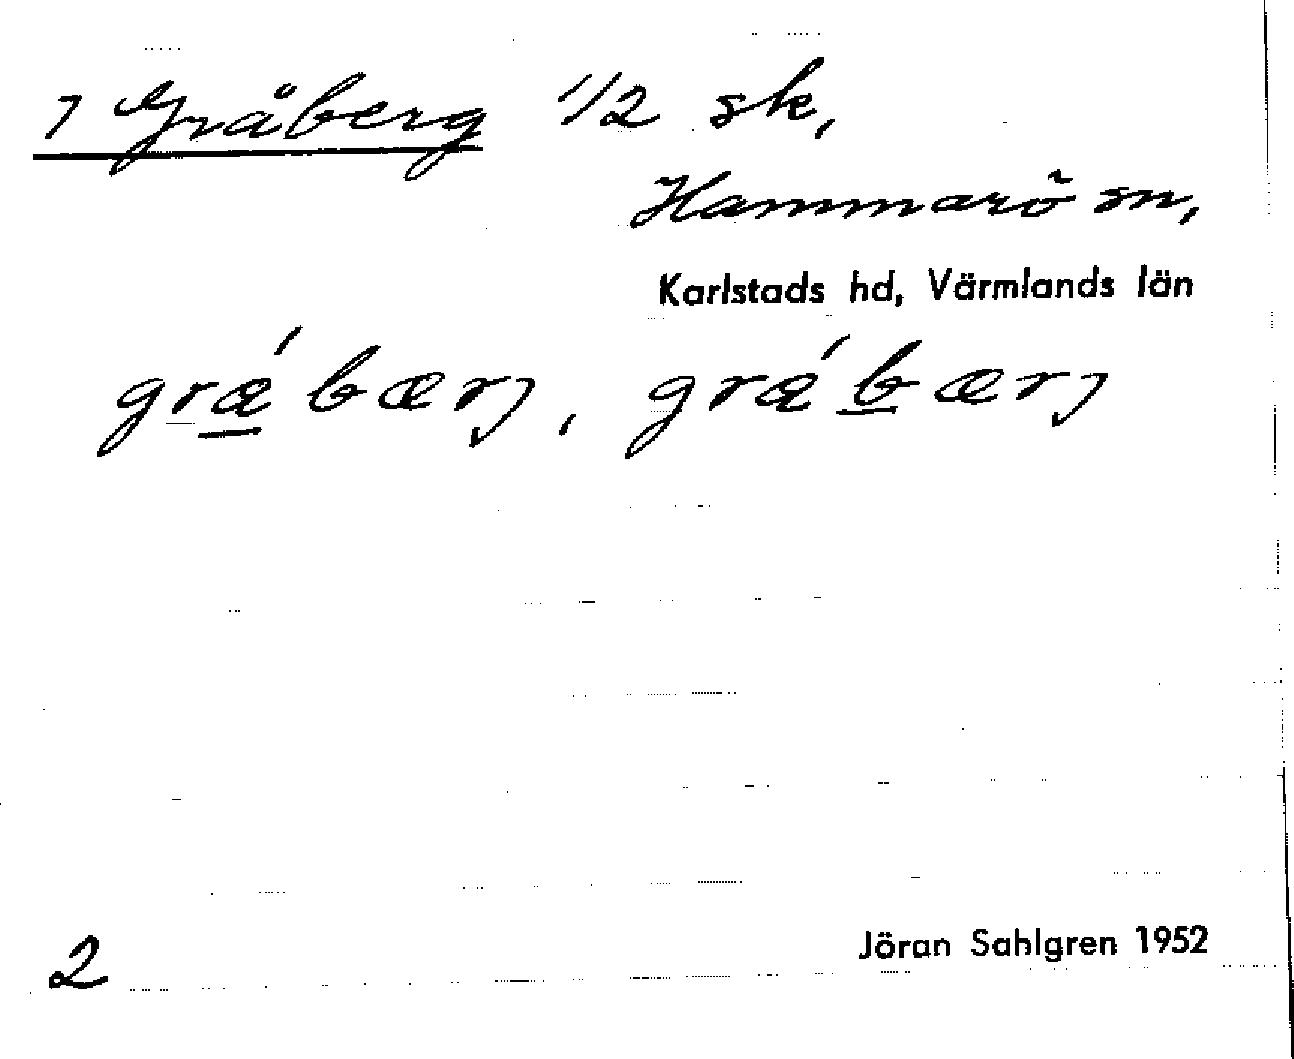 7 Gråberg 1/2 sk,
Hammarö sn,
Karlstads hd, Värmlands län
grǽbærj, grǽbærj
2
Jöran Sahlgren 1952